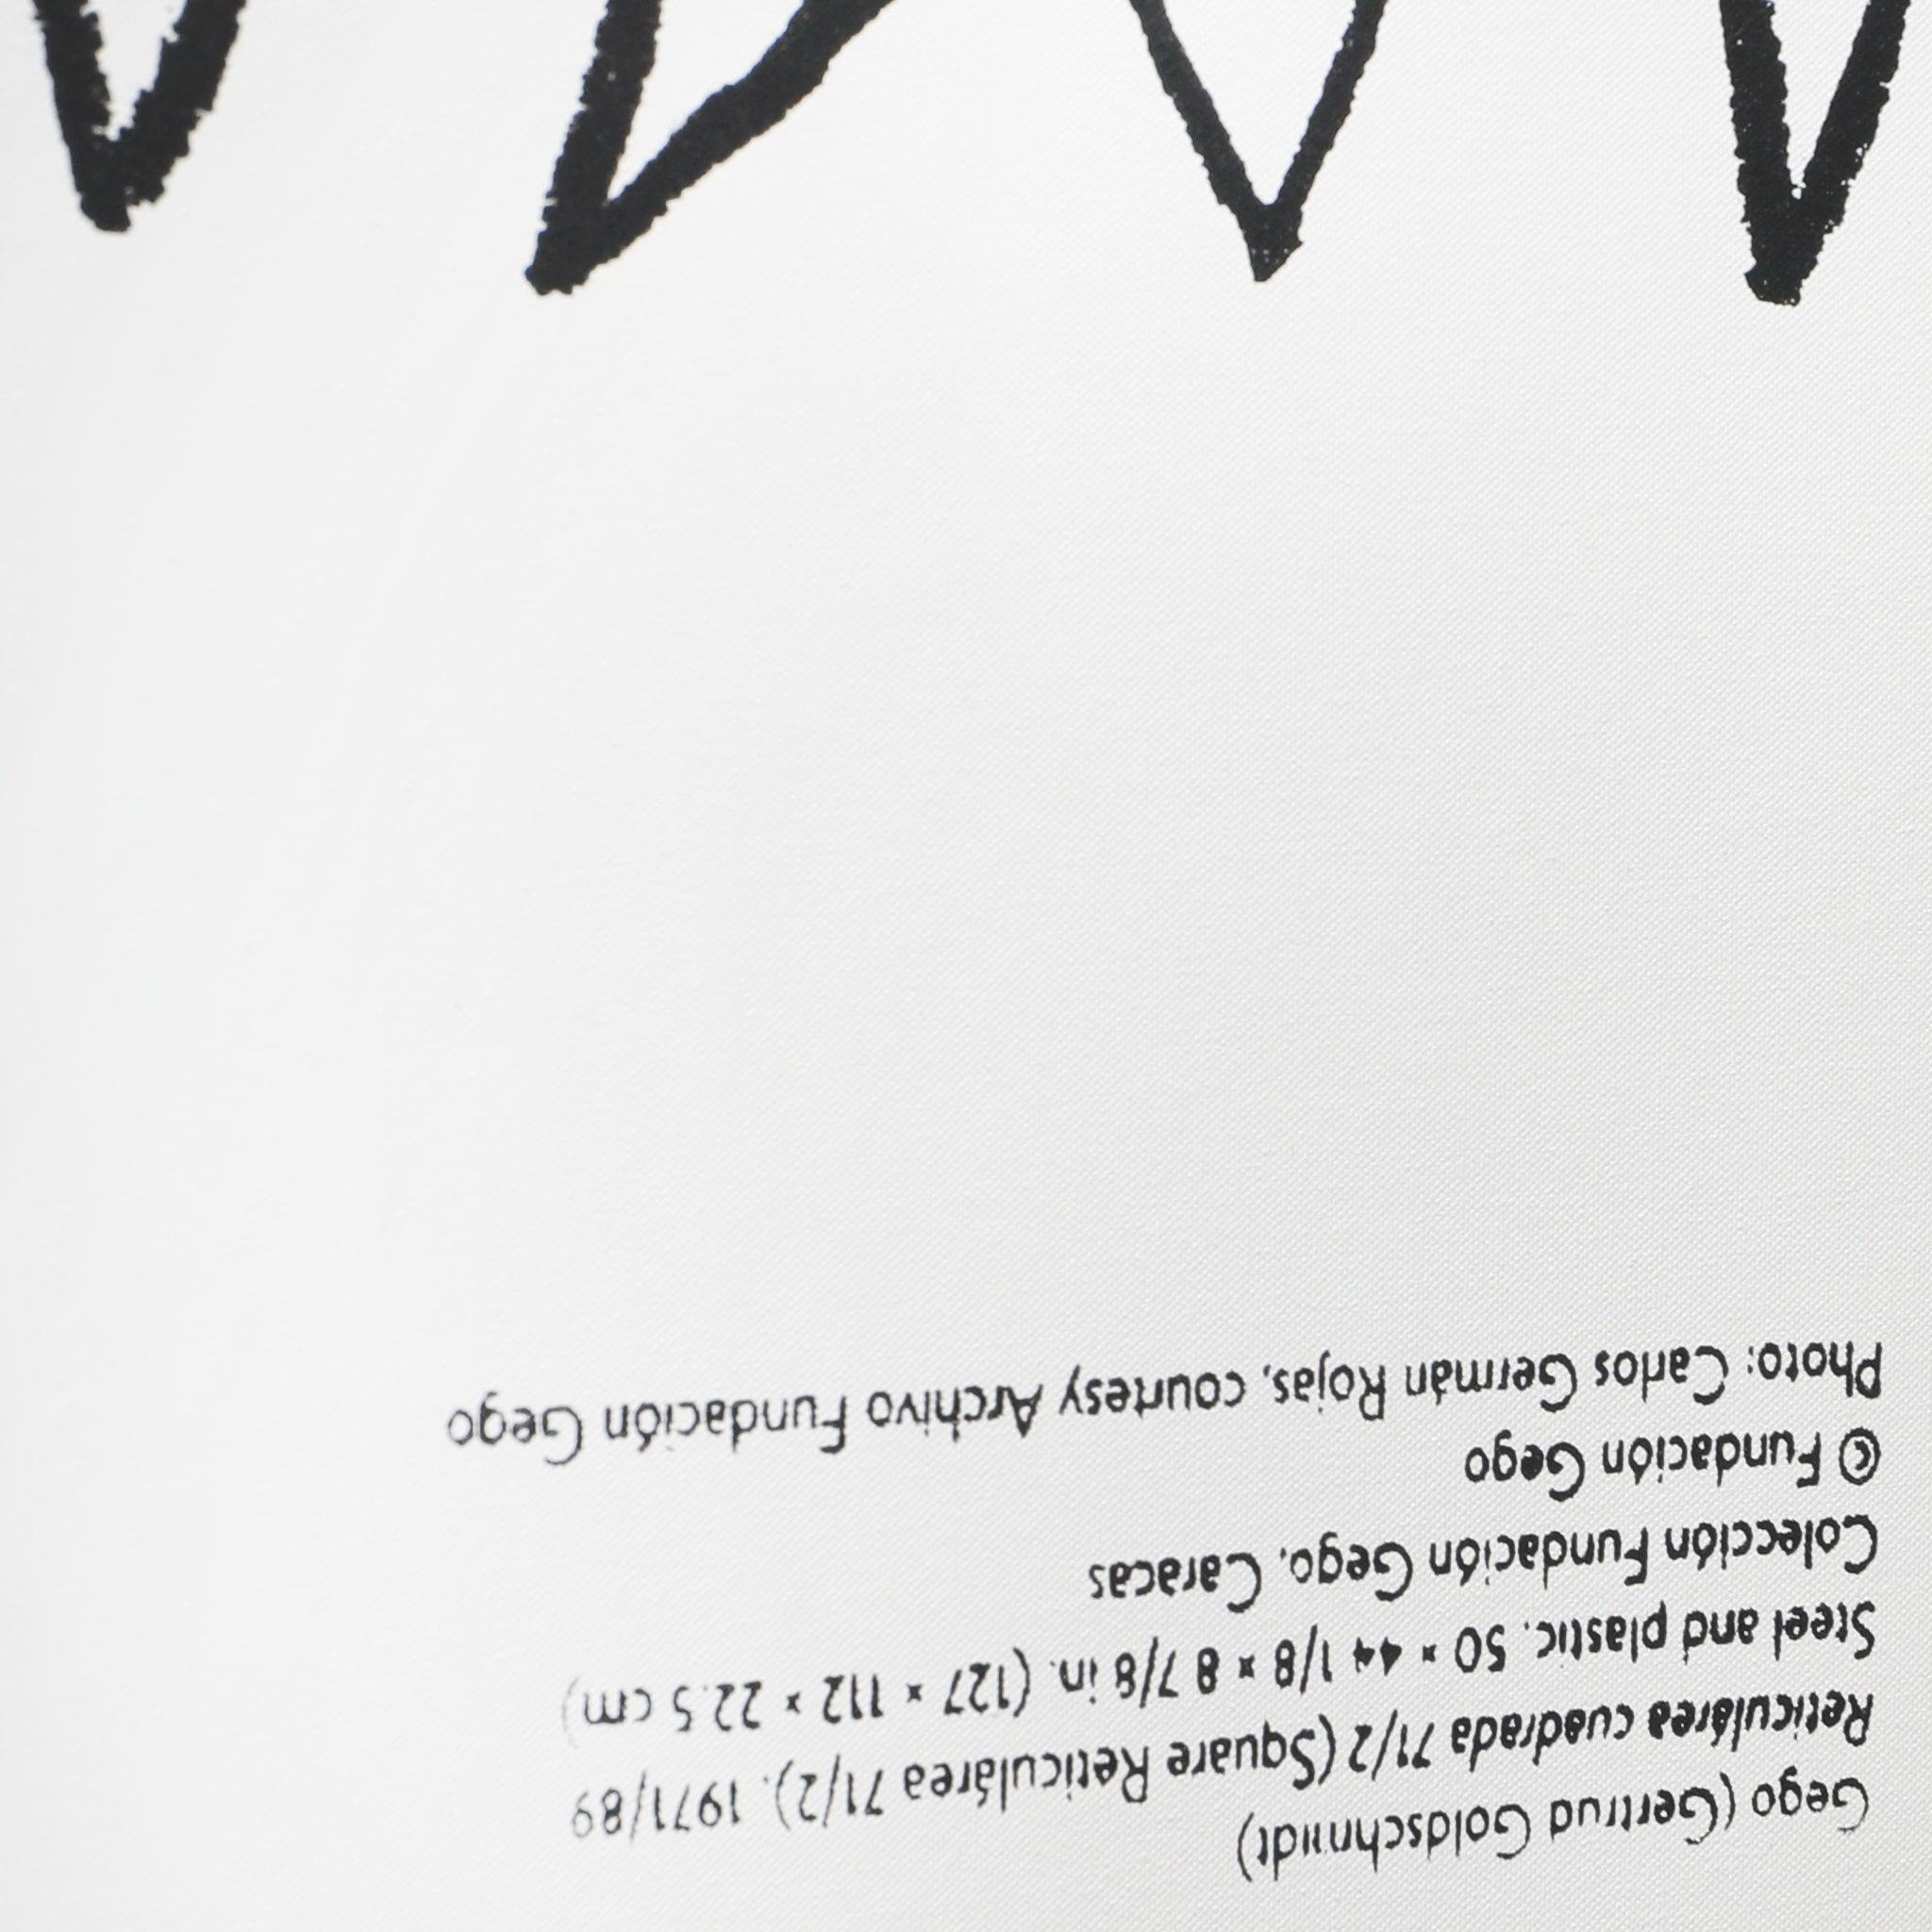 Gego (Gertrud Goldschmidt)
Reticulárea cuadrada 71/2 (Square Reticulárea 71/2), 1971/89
Steel and plastic, 50 × 44 1/8 × 8 7/8 in. (127 × 112 × 22.5 cm)
Colección Fundación Gego, Caracas
© Fundación Gego
Photo: Carlos Germán Rojas, courtesy Archivo Fundación Gego